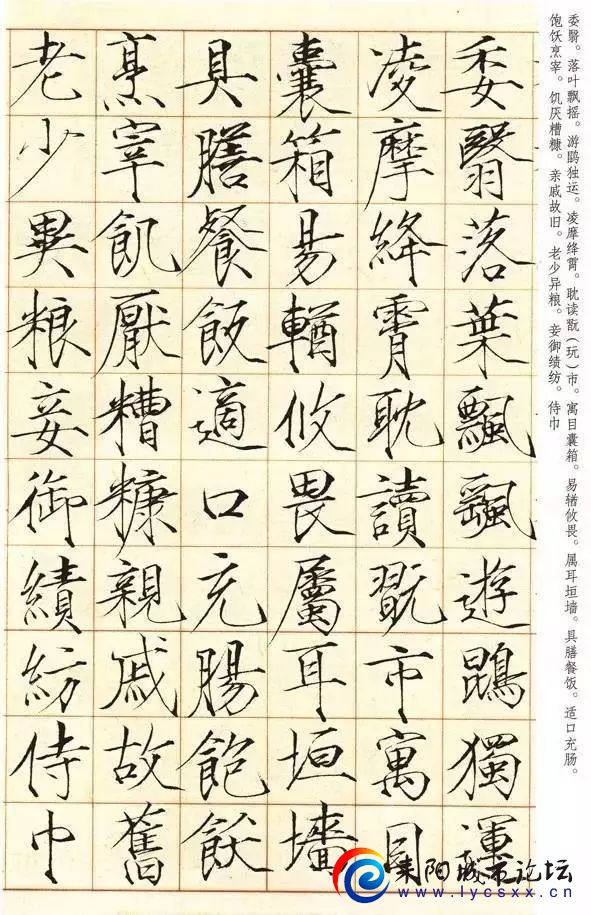 委翳。落叶飘摇。游鹍独运。凌摩绛霄。耽读翫（玩）市。寓目囊箱。易𬨎攸畏。属耳垣墙。具膳餐饭。适口充肠。
饱饫烹宰。饥厌糟糠。亲戚故旧。老少异粮。妾御绩纺。侍巾
委翳落葉飄飖遊鵾獨運
凌摩絳霄耽讀翫市寓目
囊箱易輶攸畏屬耳垣墻
具膳餐飯適口充腸飽飫
烹宰飢厭糟糠親戚故舊
老少異粮妾御績紡侍巾
耒阳城市论坛
www.lycsxx.cn